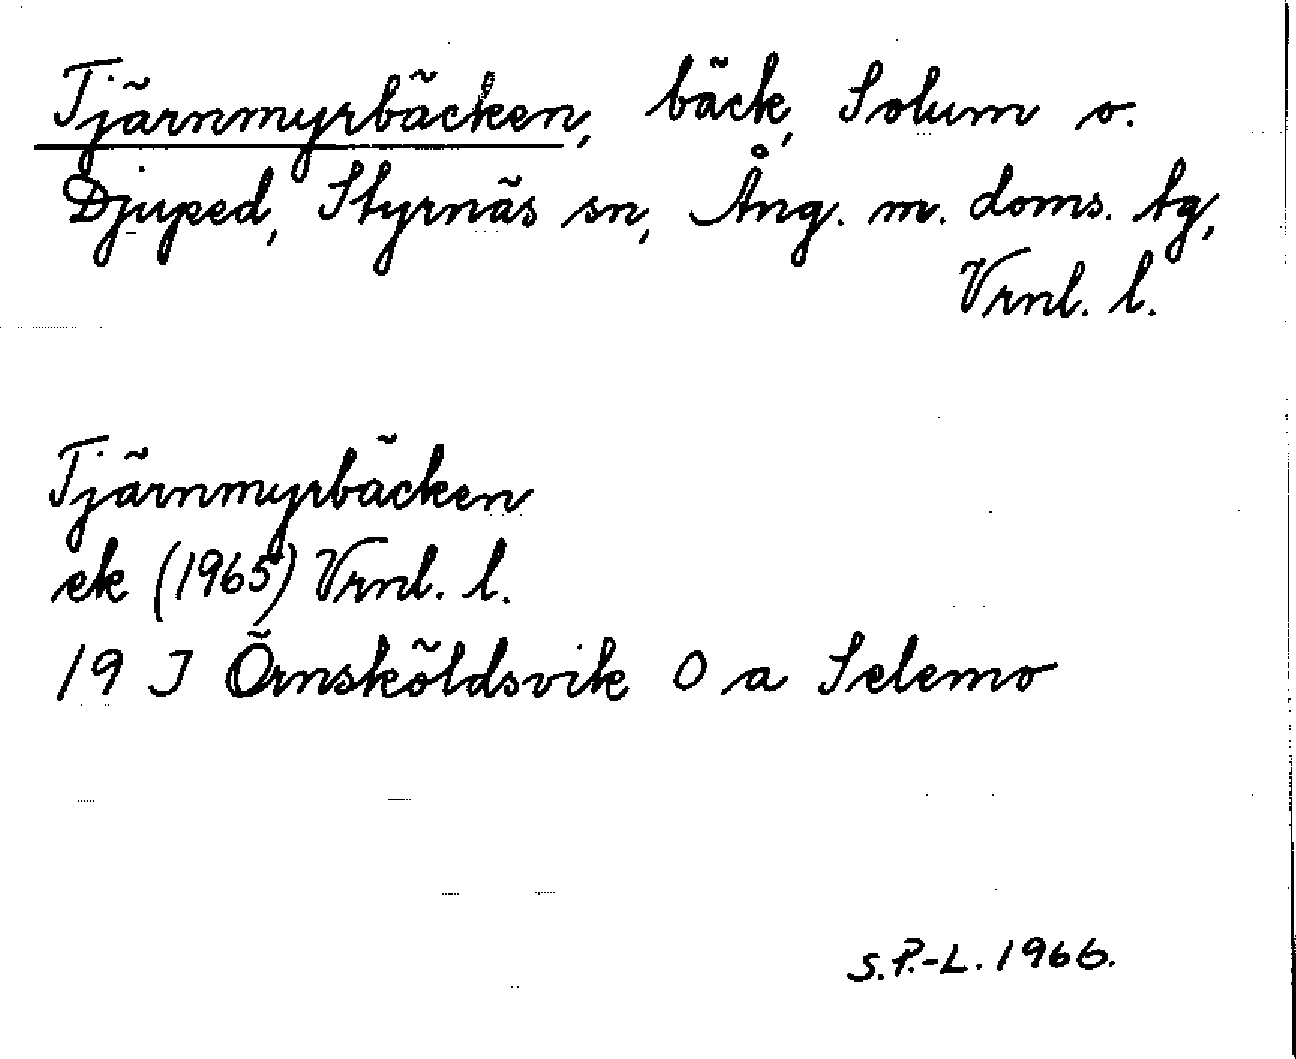 Tjärnmyrbäcken, bäck, Solum o.
Djuped, Styrnäs sn, Ång. m. doms. tg,
Vrnl. l.
Tjärnmyrbäcken
ek (1965) Vrnl. l.
19 J Örnsköldsvik O a Selemo
S.P.-L. 1966.